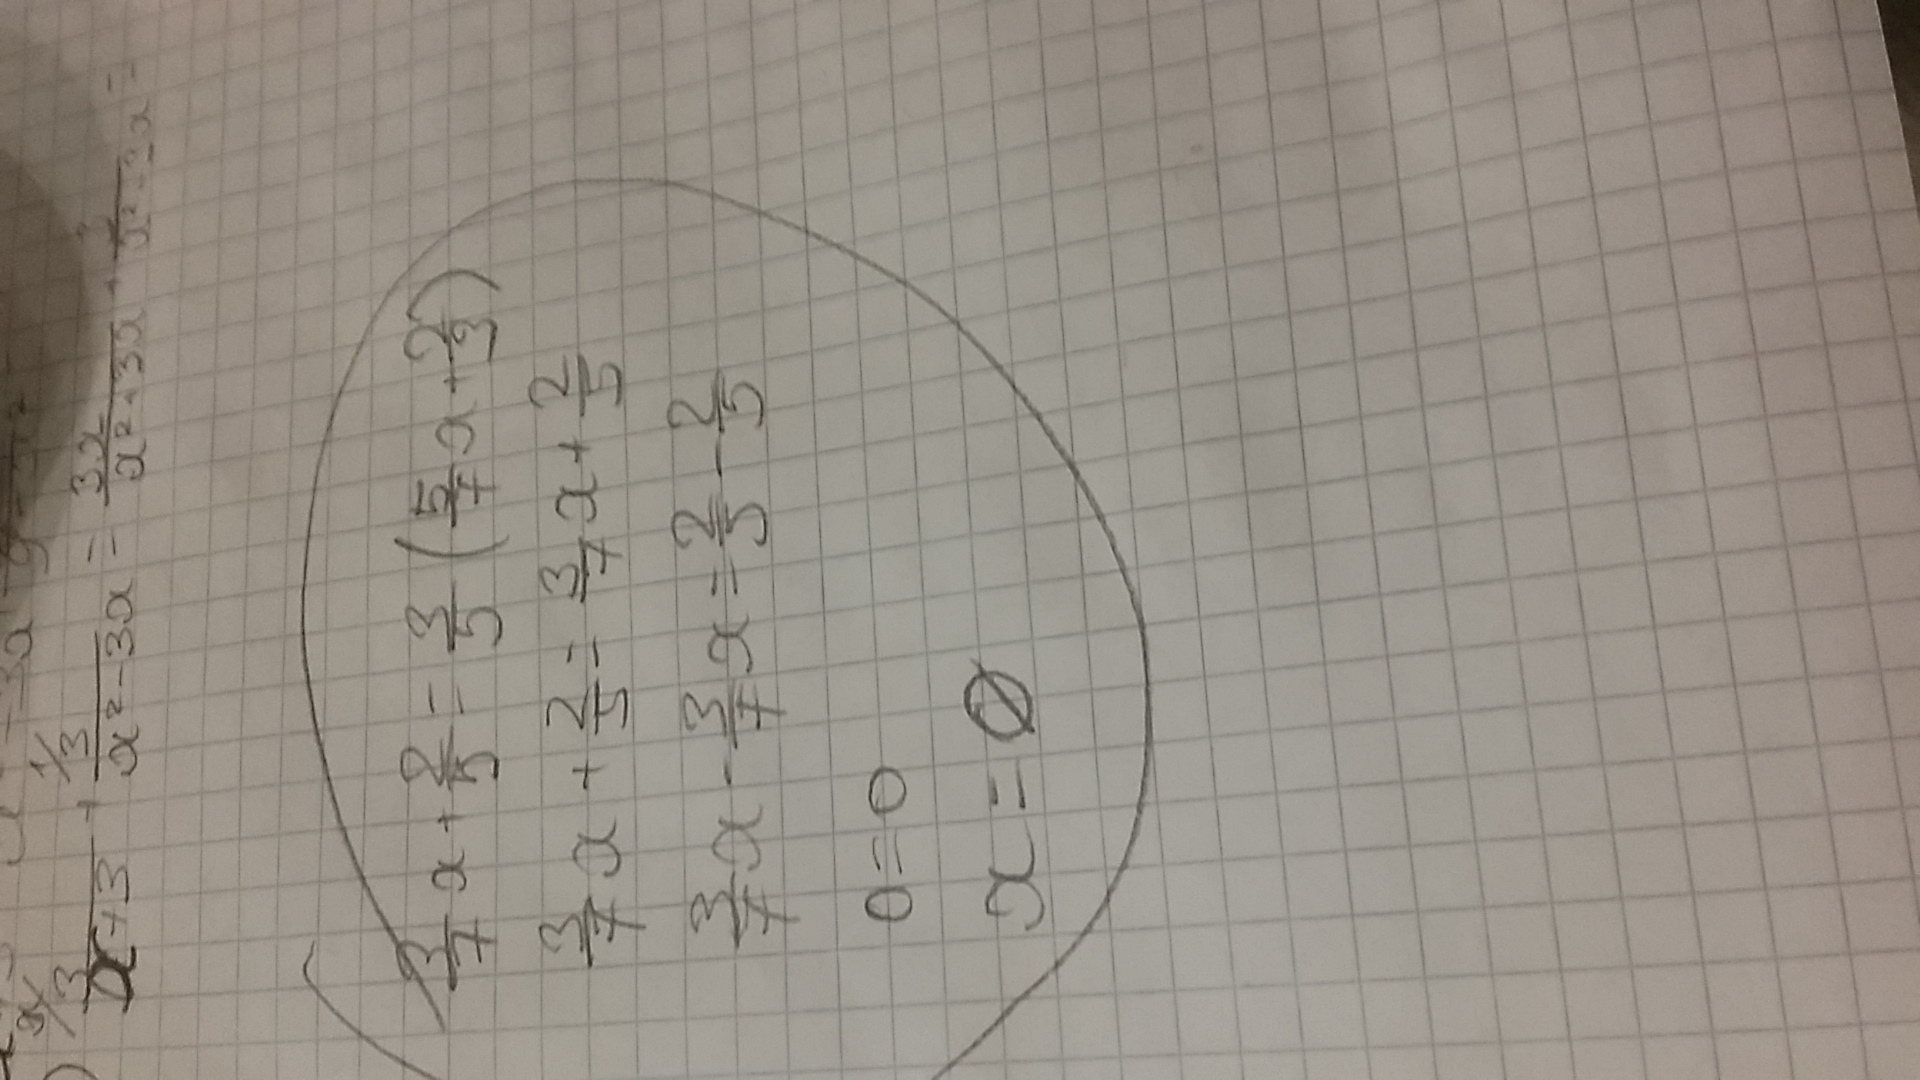 3/x+3 + 3/x²-3x = 3x/x²+3x +
3/7 x + 2/5 = 3/5 (5/7 x + 2/3)
3/7 x + 2/5 = 3/7 x + 2/5
3/7 x - 3/7 x = 2/5 - 2/5
0 = 0
x = Ø